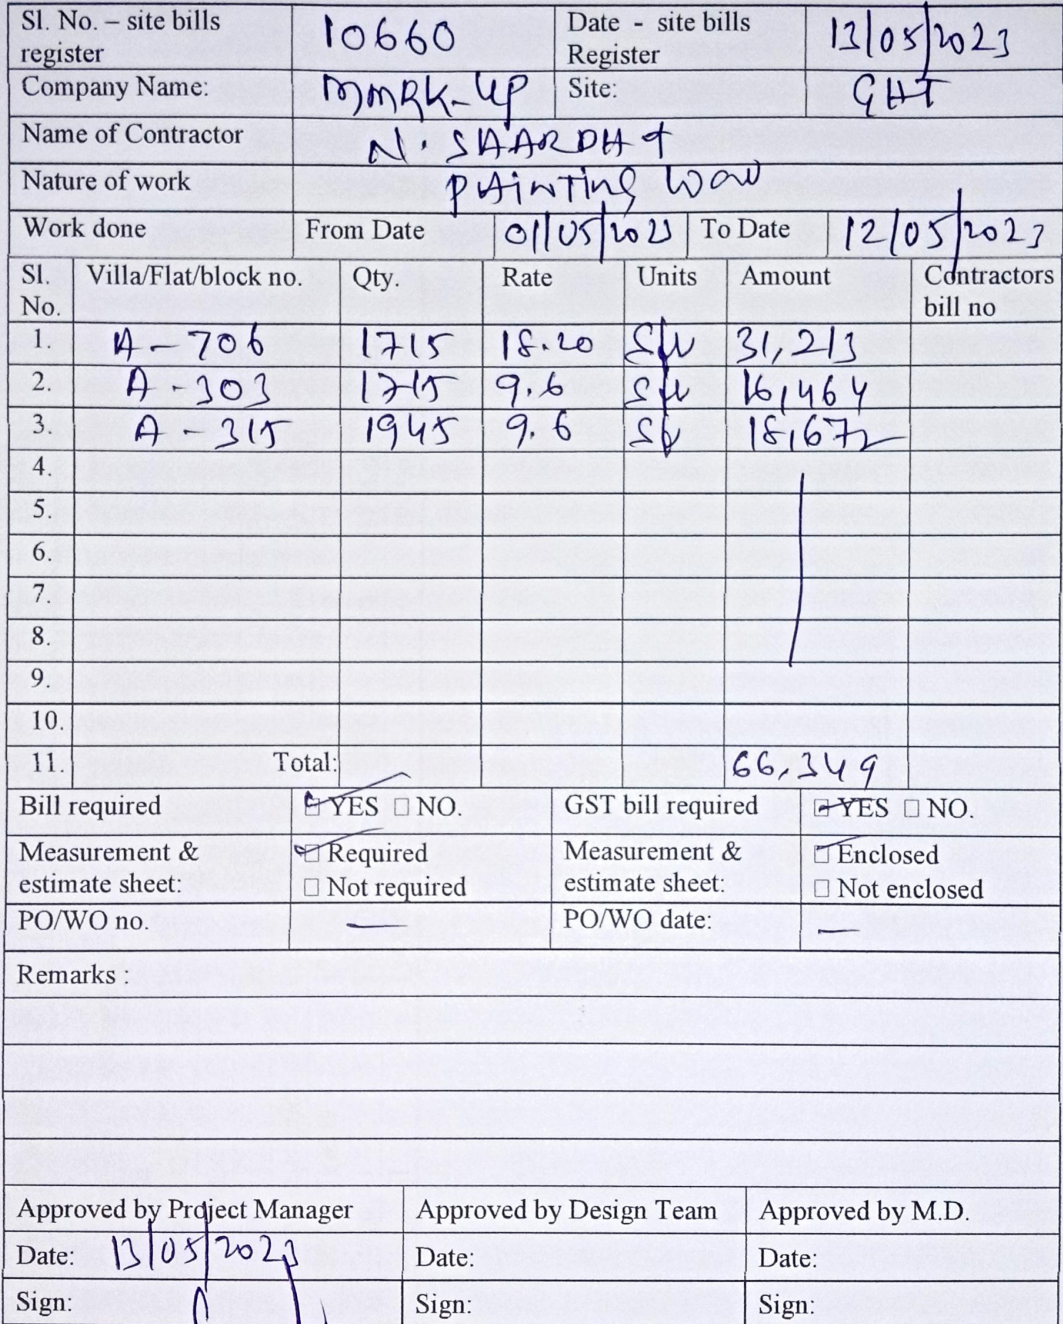 Sl. No. – site bills register 10660 Date - site bills Register 13/05/2023
Company Name: MMRK-UP Site: GHT
Name of Contractor N. SHARDHA
Nature of work PAINTING WOW
Work done From Date 01/05/2023 To Date 12/05/2023
Sl. No. Villa/Flat/block no. Qty. Rate Units Amount Contractors bill no
1. A - 706 1715 18.20 Sft 31,213
2. A - 303 1715 9.6 Sft 16,464
3. A - 315 1945 9.6 Sft 18,672
4.
5.
6.
7.
8.
9.
10.
11. Total: 66,349
Bill required YES NO. GST bill required YES NO.
Measurement & estimate sheet: Required Not required Measurement & estimate sheet: Enclosed Not enclosed
PO/WO no. — PO/WO date: —
Remarks :
Approved by Project Manager Approved by Design Team Approved by M.D.
Date: 13/05/2023 Date: Date:
Sign: Sign: Sign: